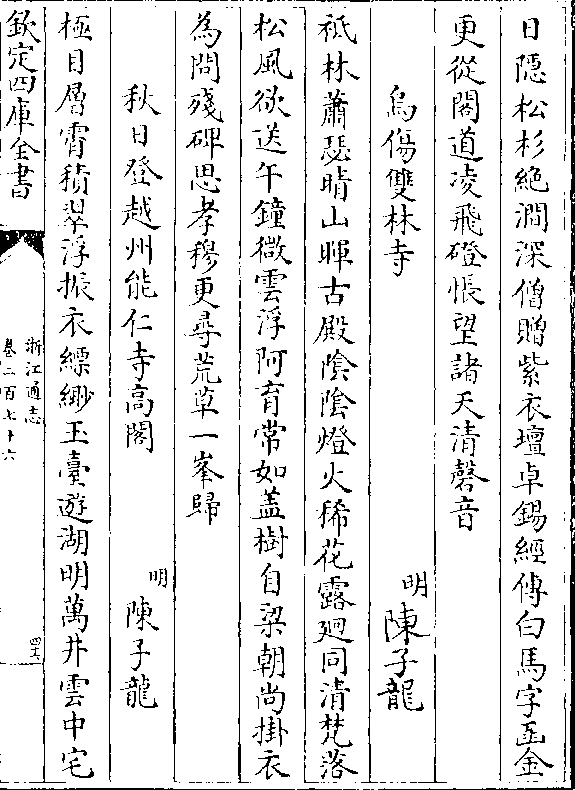 日隠松杉絶澗深僧贈紫衣壇卓錫經傳白馬字函金
更從閣道凌飛磴悵望諸天清磬音
烏傷雙林寺
明陳子龍
祇林蕭瑟晴山暉古殿陰陰燈火稀花露廻同清梵落
松風欲送午鐘微雲浮阿育常如盖樹自梁朝尚掛衣
為問殘碑思孝穆更尋荒草一峯歸
秋日登越州能仁寺高閣
明陳子龍
極目層霄積翠浮振衣縹緲玉臺遊湖明萬井雲中宅
欽定四庫全書
浙江通志
卷二百七十六
四六